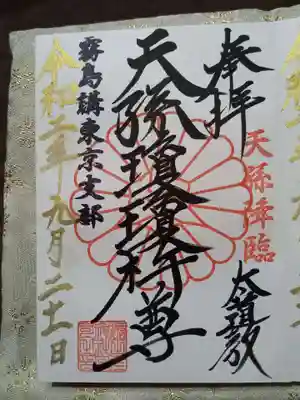 奉拝
天孫降臨
大鎮教
天孫瓊瓊杵尊
霧島講東京支部
令和二年九月二十一日